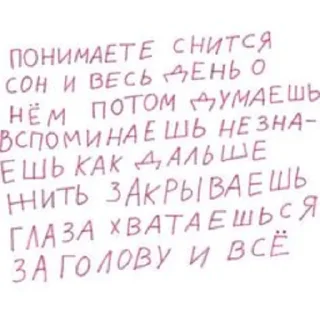 ПОНИМАЕТЕ СНИТСЯ
СОН И ВЕСЬ ДЕНЬ О
НЁМ ПОТОМ ДУМАЕШЬ
ВСПОМИНАЕШЬ НЕ ЗНА-
ЕШЬ КАК ДАЛЬШЕ
ЖИТЬ ЗАКРЫВАЕШЬ
ГЛАЗА ХВАТАЕШЬСЯ
ЗА ГОЛОВУ И ВСЁ